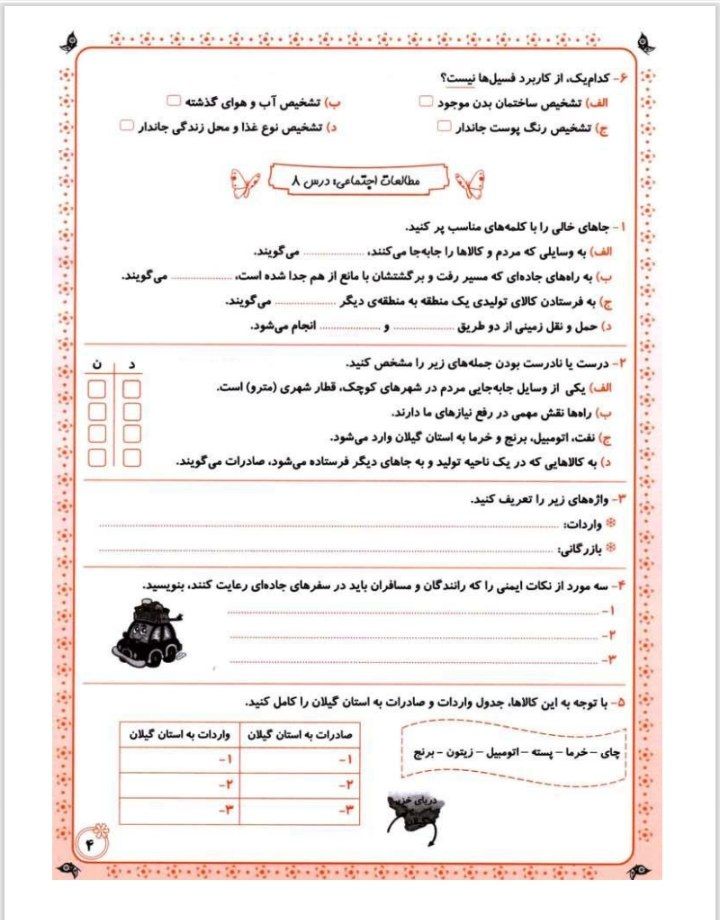 ۶- کدام‌یک، از کاربرد فسیل‌ها نیست؟
الف) تشخیص ساختمان بدن موجود ب) تشخیص آب و هوای گذشته
ج) تشخیص رنگ پوست جاندار د) تشخیص نوع غذا و محل زندگی جاندار
مطالعات اجتماعی: درس ۸
۱- جاهای خالی را با کلمه‌های مناسب پر کنید.
الف) به وسایلی که مردم و کالاها را جابه‌جا می‌کنند، .................... می‌گویند.
ب) به راه‌های جاده‌ای که مسیر رفت و برگشتشان با مانع از هم جدا شده است، .................... می‌گویند.
ج) به فرستادن کالای تولیدی یک منطقه به منطقه‌ی دیگر .................... می‌گویند.
د) حمل و نقل زمینی از دو طریق .................... و .................... انجام می‌شود.
۲- درست یا نادرست بودن جمله‌های زیر را مشخص کنید.
د ن
الف) یکی از وسایل جابه‌جایی مردم در شهرهای کوچک، قطار شهری (مترو) است.
ب) راه‌ها نقش مهمی در رفع نیازهای ما دارند.
ج) نفت، اتومبیل، برنج و خرما به استان گیلان وارد می‌شود.
د) به کالاهایی که در یک ناحیه تولید و به جاهای دیگر فرستاده می‌شود، صادرات می‌گویند.
۳- واژه‌های زیر را تعریف کنید.
واردات:
بازرگانی:
۴- سه مورد از نکات ایمنی را که رانندگان و مسافران باید در سفرهای جاده‌ای رعایت کنند، بنویسید.
۱-
۲-
۳-
۵- با توجه به این کالاها، جدول واردات و صادرات به استان گیلان را کامل کنید.
چای – خرما – پسته – اتومبیل – زیتون – برنج
صادرات به استان گیلان واردات به استان گیلان
۱- ۱-
۲- ۲-
۳- ۳-
دریای خزر
۴